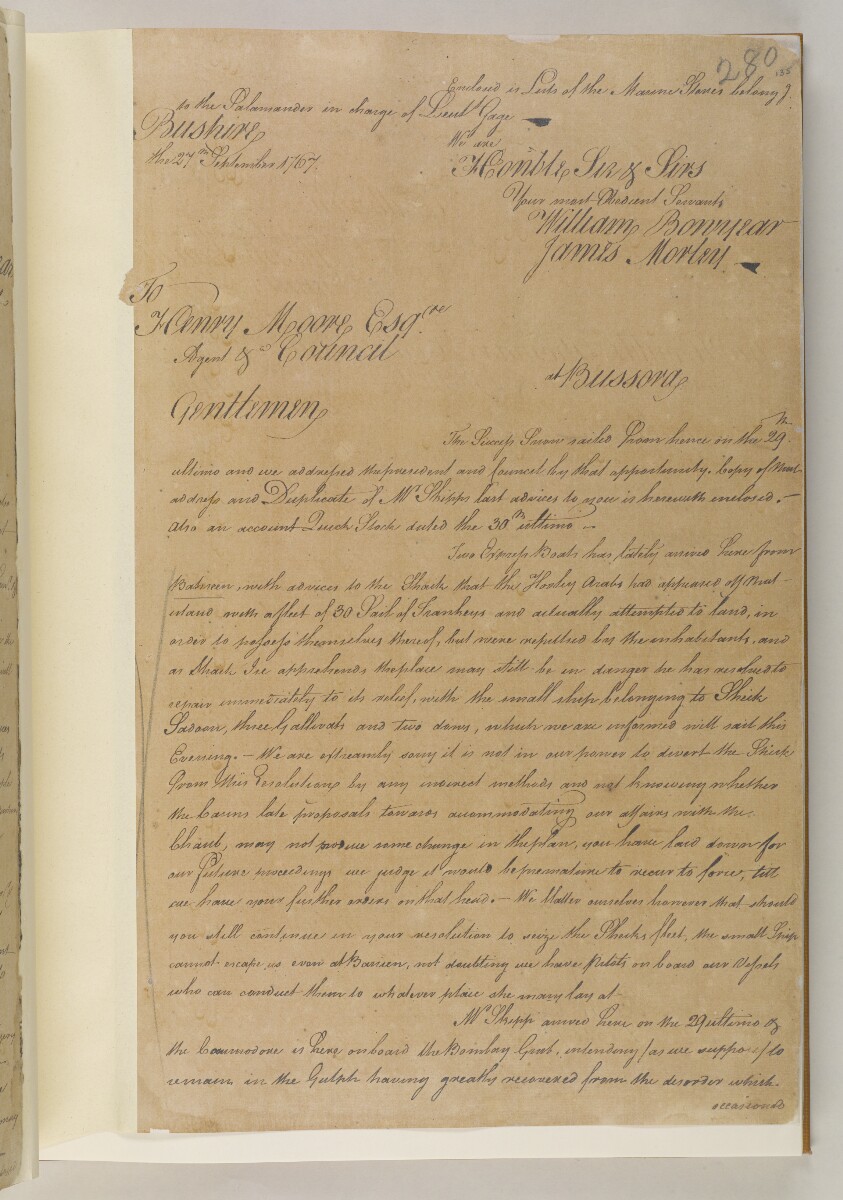 280
155
Enclosed is Lists of the Marine Stores belong.g
to the Salamander in charge of Lieut. Gage
Bushire
the 27th September 1767.
We are
Hon'ble Sir & Sirs
Your most Obedient Servants
William Bowyear
James Morley
To
Henry Moore Esq.re
Agent &ca Council
at Bussora
Gentlemen
The Success Snow sailed from hence on the 29th
ultimo and we addressed the president and Council by that opportunity. Copy of that
address and Duplicate of Mr Skipps last advices to you is herewith enclosed.-
also an account Quick Stock dated the 30th ultimo -
Two Express Boats has, lately arrived here from
Bahreen, with advices to the Shaik that the Houley Arabs had appeared off that
island with a fleet of 30 Sail of Trankeys and actually attempted to land, in
order to possess themselves thereof, but were repulsed by the inhabitants, and
as Shaik apprehends the place may still be in danger he has resolved to
repair immediately to its relief, with the small ship belonging to Sheik
Sadoon, three Gallivats and two dows, which we are informed will sail this
Evening. - We are extreamly sorry it is not in our power to divert the Shaik
from this resolution by any indirect methods and not knowing whether
the Carins late proposals towards accommodating our affairs with the
Chaub, may not produce some change in the plan, you have laid down for
our future proceedings we judge it would be premature to recur to force, till
we have your further orders on that head. - We flatter ourselves however that should
you still continue in your resolution to seize the Shaiks fleet, the small Ship
cannot escape us even at Bareen, not doubting we have Pilots on board our Vessels
who can conduct them to whatever place she may lay at -
Mr Skipp arrived here on the 29 ultimo &
the Commodore is here on board the Bombay Grab, intending (as we suppose) to
remain in the Gulph having greatly recovered from the disorder which
occasioned